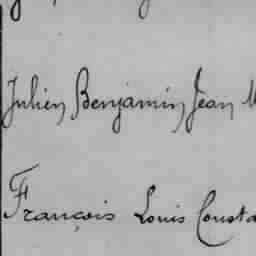 Julien, Benjamin, Jean
François Louis Consta